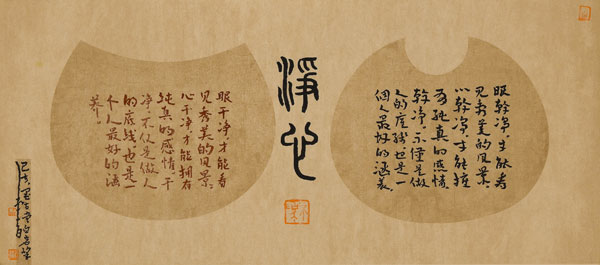 眼幹净,才能看
见秀美的风景,
心幹净,才能擁
有純真的感情。
幹净,不僅是做
人的底线也是一
個人最好的涵養。
淨心
眼干净,才能看
见秀美的风景。
心干净,才能拥有
纯真的感情。干
净,不仅是做人
的底线也是一
个人最好的涵
养。